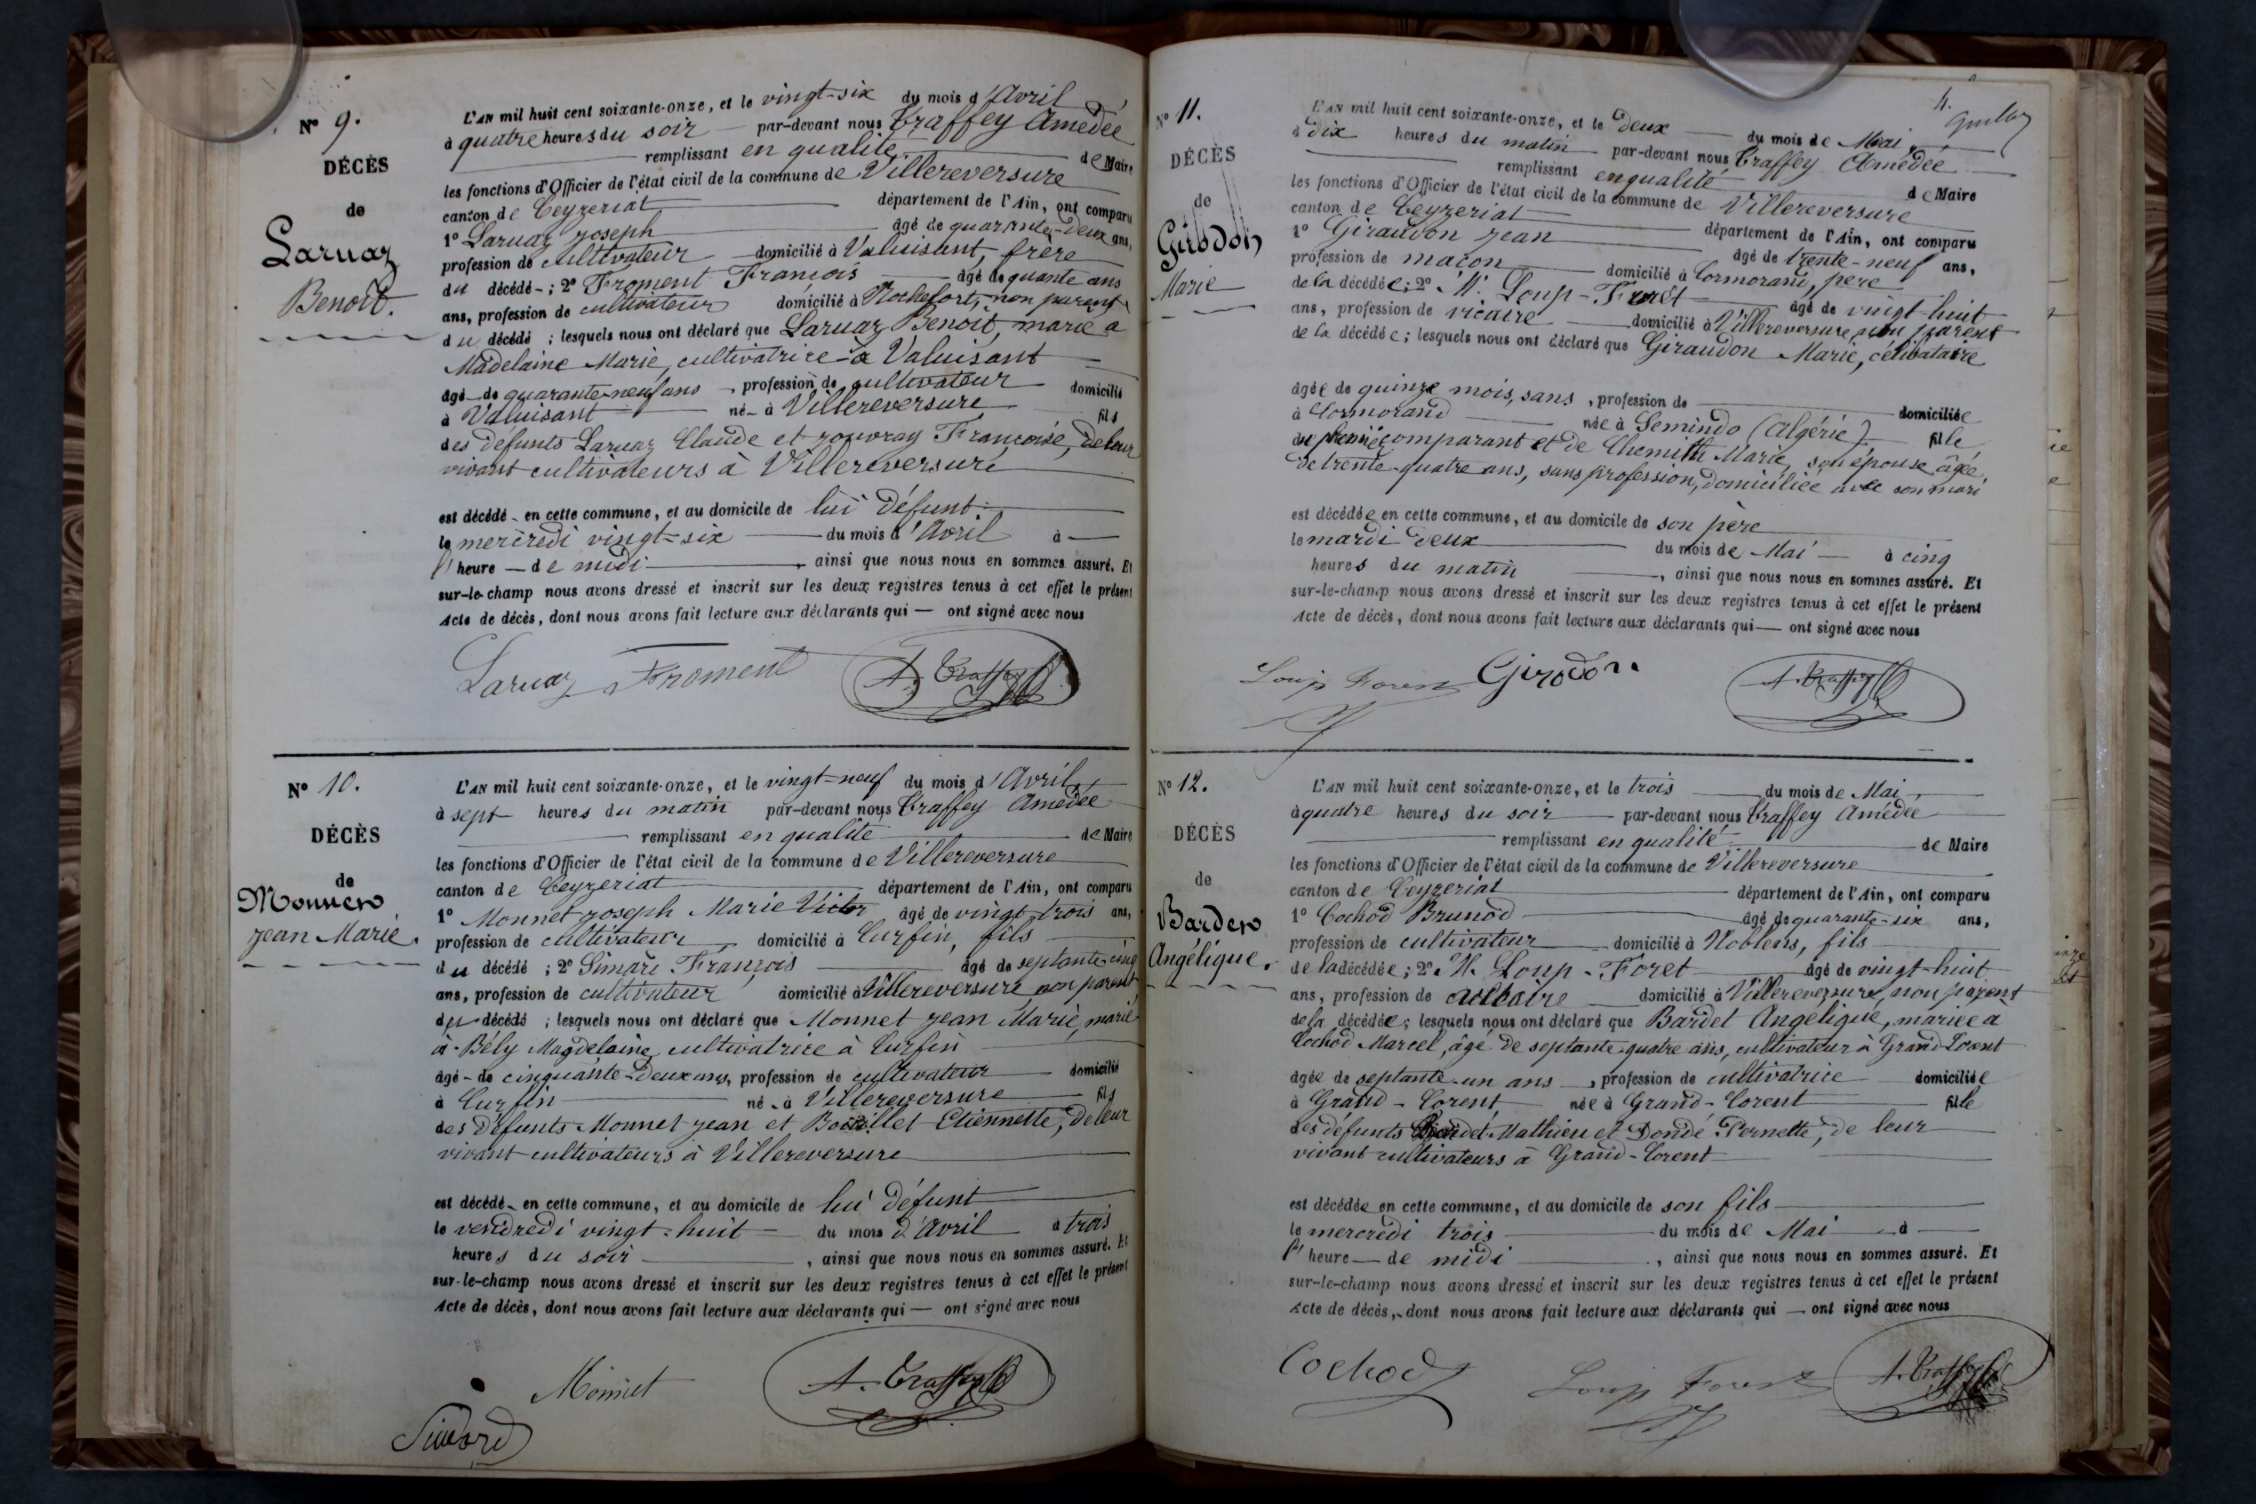 N° 9.
DÉCÈS
de
Laruaz
Benoit.
L'AN mil huit cent soixante-onze, et le vingt-six du mois d'Avril
à quatre heures du soir par-devant nous Traffey Amédée
remplissant en qualité de Maire
les fonctions d'Officier de l'état civil de la commune de Villereversure
canton de Ceyzeriat département de l'Ain, ont comparu
1° Laruaz Joseph âgé de quarante-deux ans,
profession de cultivateur domicilié à Valuisant, frère
du décédé ; 2° Froment François âgé de quante ans
ans, profession de cultivateur domicilié à Rochefort, non parent
du décédé ; lesquels nous ont déclaré que Laruaz Benoit, marié à
Madelaine Marie, cultivatrice à Valuisant
âgé de quarante-neuf ans, profession de cultivateur domicilié
à Valuisant né à Villereversure fils
des défunts Laruaz Claude et Françoise, de leur
vivant cultivateurs à Villereversure
est décédé en cette commune, et au domicile de lui défunt
le mercredi vingt-six du mois d'Avril à
l'heure de midi, ainsi que nous nous en sommes assuré. Et
sur-le-champ nous avons dressé et inscrit sur les deux registres tenus à cet effet le présent
Acte de décès, dont nous avons fait lecture aux déclarants qui ont signé avec nous
Laruaz Froment A. Traffey
N° 10.
DÉCÈS
de
Monnet
Jean Marie.
L'AN mil huit cent soixante-onze, et le vingt-neuf du mois d'Avril
à sept heures du matin par-devant nous Traffey Amédée
remplissant en qualité de Maire
les fonctions d'Officier de l'état civil de la commune de Villereversure
canton de Ceyzeriat département de l'Ain, ont comparu
1° Monnet Joseph Marie Victor âgé de vingt-trois ans,
profession de cultivateur domicilié à Curfin, fils
du décédé ; 2° François âgé de septante-cinq
ans, profession de cultivateur domicilié à Villereversure non parent
du décédé ; lesquels nous ont déclaré que Monnet Jean Marie, marié
à Bély Magdelaine cultivatrice à Curfin
âgé de cinquante-deux ans, profession de cultivateur domicilié
à Curfin né à Villereversure fils
des défunts Monnet Jean et Etiennette, de leur
vivant cultivateurs à Villereversure
est décédé en cette commune, et au domicile de lui défunt
le vendredi vingt-huit du mois d'Avril à trois
heures du soir, ainsi que nous nous en sommes assuré. Et
sur-le-champ nous avons dressé et inscrit sur les deux registres tenus à cet effet le présent
Acte de décès, dont nous avons fait lecture aux déclarants qui ont signé avec nous
Monnet A. Traffey
N° 11.
DÉCÈS
de
Girodon
Marie
L'AN mil huit cent soixante-onze, et le deux du mois de Mai,
à dix heures du matin par-devant nous Traffey Amédée
remplissant en qualité de Maire
les fonctions d'Officier de l'état civil de la commune de Villereversure
canton de Ceyzeriat département de l'Ain, ont comparu
1° Giraudon Jean âgé de trente-neuf ans,
profession de maçon domicilié à Cormorand, père
de la décédée ; 2° M. Loup-Forêt âgé de vingt-huit
ans, profession de vicaire domicilié à Villereversure non parent
de la décédée ; lesquels nous ont déclaré que Giraudon Marie, célibataire
âgée de quinze mois, sans, profession de domiciliée
à Cormorand née à Semindo (Algérie) fille
du premier comparant et de Chemith Marie, son épouse âgée
de trente-quatre ans, sans profession, domiciliée avec son mari
est décédée en cette commune, et au domicile de son père
le mardi deux du mois de Mai à cinq
heures du matin, ainsi que nous nous en sommes assuré. Et
sur-le-champ nous avons dressé et inscrit sur les deux registres tenus à cet effet le présent
Acte de décès, dont nous avons fait lecture aux déclarants qui ont signé avec nous
Loup Forest Girodon A. Traffey
N° 12.
DÉCÈS
de
Bardet
Angélique.
L'AN mil huit cent soixante-onze, et le trois du mois de Mai,
à quatre heures du soir par-devant nous Traffey Amédée
remplissant en qualité de Maire
les fonctions d'Officier de l'état civil de la commune de Villereversure
canton de Ceyzeriat département de l'Ain, ont comparu
1° Cochod Brunod âgé de quarante-six ans,
profession de cultivateur domicilié à Noblens, fils
de la décédée ; 2° M. Loup-Foret âgé de vingt-huit
ans, profession de domicilié à Villereversure, non parent
de la décédée ; lesquels nous ont déclaré que Bardet Angélique, mariée à
Cochod Marcel, âgé de septante-quatre ans, cultivateur à Grand-Corent
âgée de septante-un ans, profession de cultivatrice domiciliée
à Grand-Corent née à Grand-Corent fille
des défunts Bardet Mathieu et Dondé Pernette, de leur
vivant cultivateurs à Grand-Corent
est décédée en cette commune, et au domicile de son fils
le mercredi trois du mois de Mai à
l'heure de midi, ainsi que nous nous en sommes assuré. Et
sur-le-champ nous avons dressé et inscrit sur les deux registres tenus à cet effet le présent
Acte de décès, dont nous avons fait lecture aux déclarants qui ont signé avec nous
Cochod Loup Forest A. Traffey